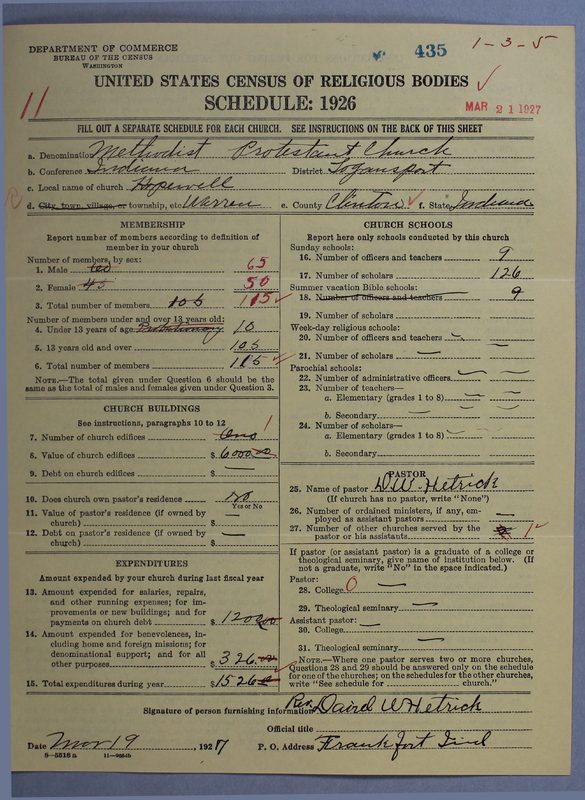 DEPARTMENT OF COMMERCE
BUREAU OF THE CENSUS
WASHINGTON
435
1-3-5
UNITED STATES CENSUS OF RELIGIOUS BODIES ✓
SCHEDULE: 1926
11
MAR 21 1927
FILL OUT A SEPARATE SCHEDULE FOR EACH CHURCH. SEE INSTRUCTIONS ON THE BACK OF THIS SHEET
a. Denomination Methodist Protestant Church
b. Conference Indiana District Logansport
c. Local name of church Hopewell
d. City, town, village, or township, etc Warren e. County Clinton ✓ f. State Indiana
MEMBERSHIP
Report number of members according to definition of
member in your church
Number of members, by sex:
1. Male 65
2. Female 45 50
3. Total number of members 105 115 ✓
Number of members under and over 13 years old:
4. Under 13 years of age 10
5. 13 years old and over 105
6. Total number of members 115 ✓
NOTE.—The total given under Question 6 should be
the same as the total of males and females given under Question 3.
CHURCH BUILDINGS
See instructions, paragraphs 10 to 12
7. Number of church edifices One 1
8. Value of church edifices $ 6000.00
9. Debt on church edifices $ —
10. Does church own pastor's residence No
Yes or No
11. Value of pastor's residence (if owned by
church) $ —
12. Debt on pastor's residence (if owned by
church) $ —
EXPENDITURES
Amount expended by your church during last fiscal year
13. Amount expended for salaries, repairs,
and other running expenses; for im-
provements or new buildings; and for
payments on church debt $ 1200.00
14. Amount expended for benevolences, in-
cluding home and foreign missions; for
denominational support; and for all
other purposes $ 326.00
15. Total expenditures during year $ 1526
CHURCH SCHOOLS
Report here only schools conducted by this church
Sunday schools:
16. Number of officers and teachers 9
17. Number of scholars 126
Summer vacation Bible schools:
18. Number of officers and teachers 9
19. Number of scholars
Week-day religious schools:
20. Number of officers and teachers
21. Number of scholars —
Parochial schools:
22. Number of administrative officers —
23. Number of teachers—
a. Elementary (grades 1 to 8) —
b. Secondary —
24. Number of scholars—
a. Elementary (grades 1 to 8) —
b. Secondary
PASTOR
25. Name of pastor D.W. Hetrick
(If church has no pastor, write "None")
26. Number of ordained ministers, if any, em-
ployed as assistant pastors —
27. Number of other churches served by the
pastor or his assistants 1 ✓
If pastor (or assistant pastor) is a graduate of a college or
theological seminary, give name of institution below. (If
not a graduate, write "No" in the space indicated.)
Pastor:
28. College 0 —
29. Theological seminary —
Assistant pastor:
30. College —
31. Theological seminary —
NOTE.—Where one pastor serves two or more churches,
Questions 28 and 29 should be answered only on the schedule
for one of the churches; on the schedules for the other churches,
write "See schedule for church."
Signature of person furnishing information Rev. David W Hetrick
Official title
Date Mar 19, 1927 P. O. Address Frankfort Ind
8—5518 a